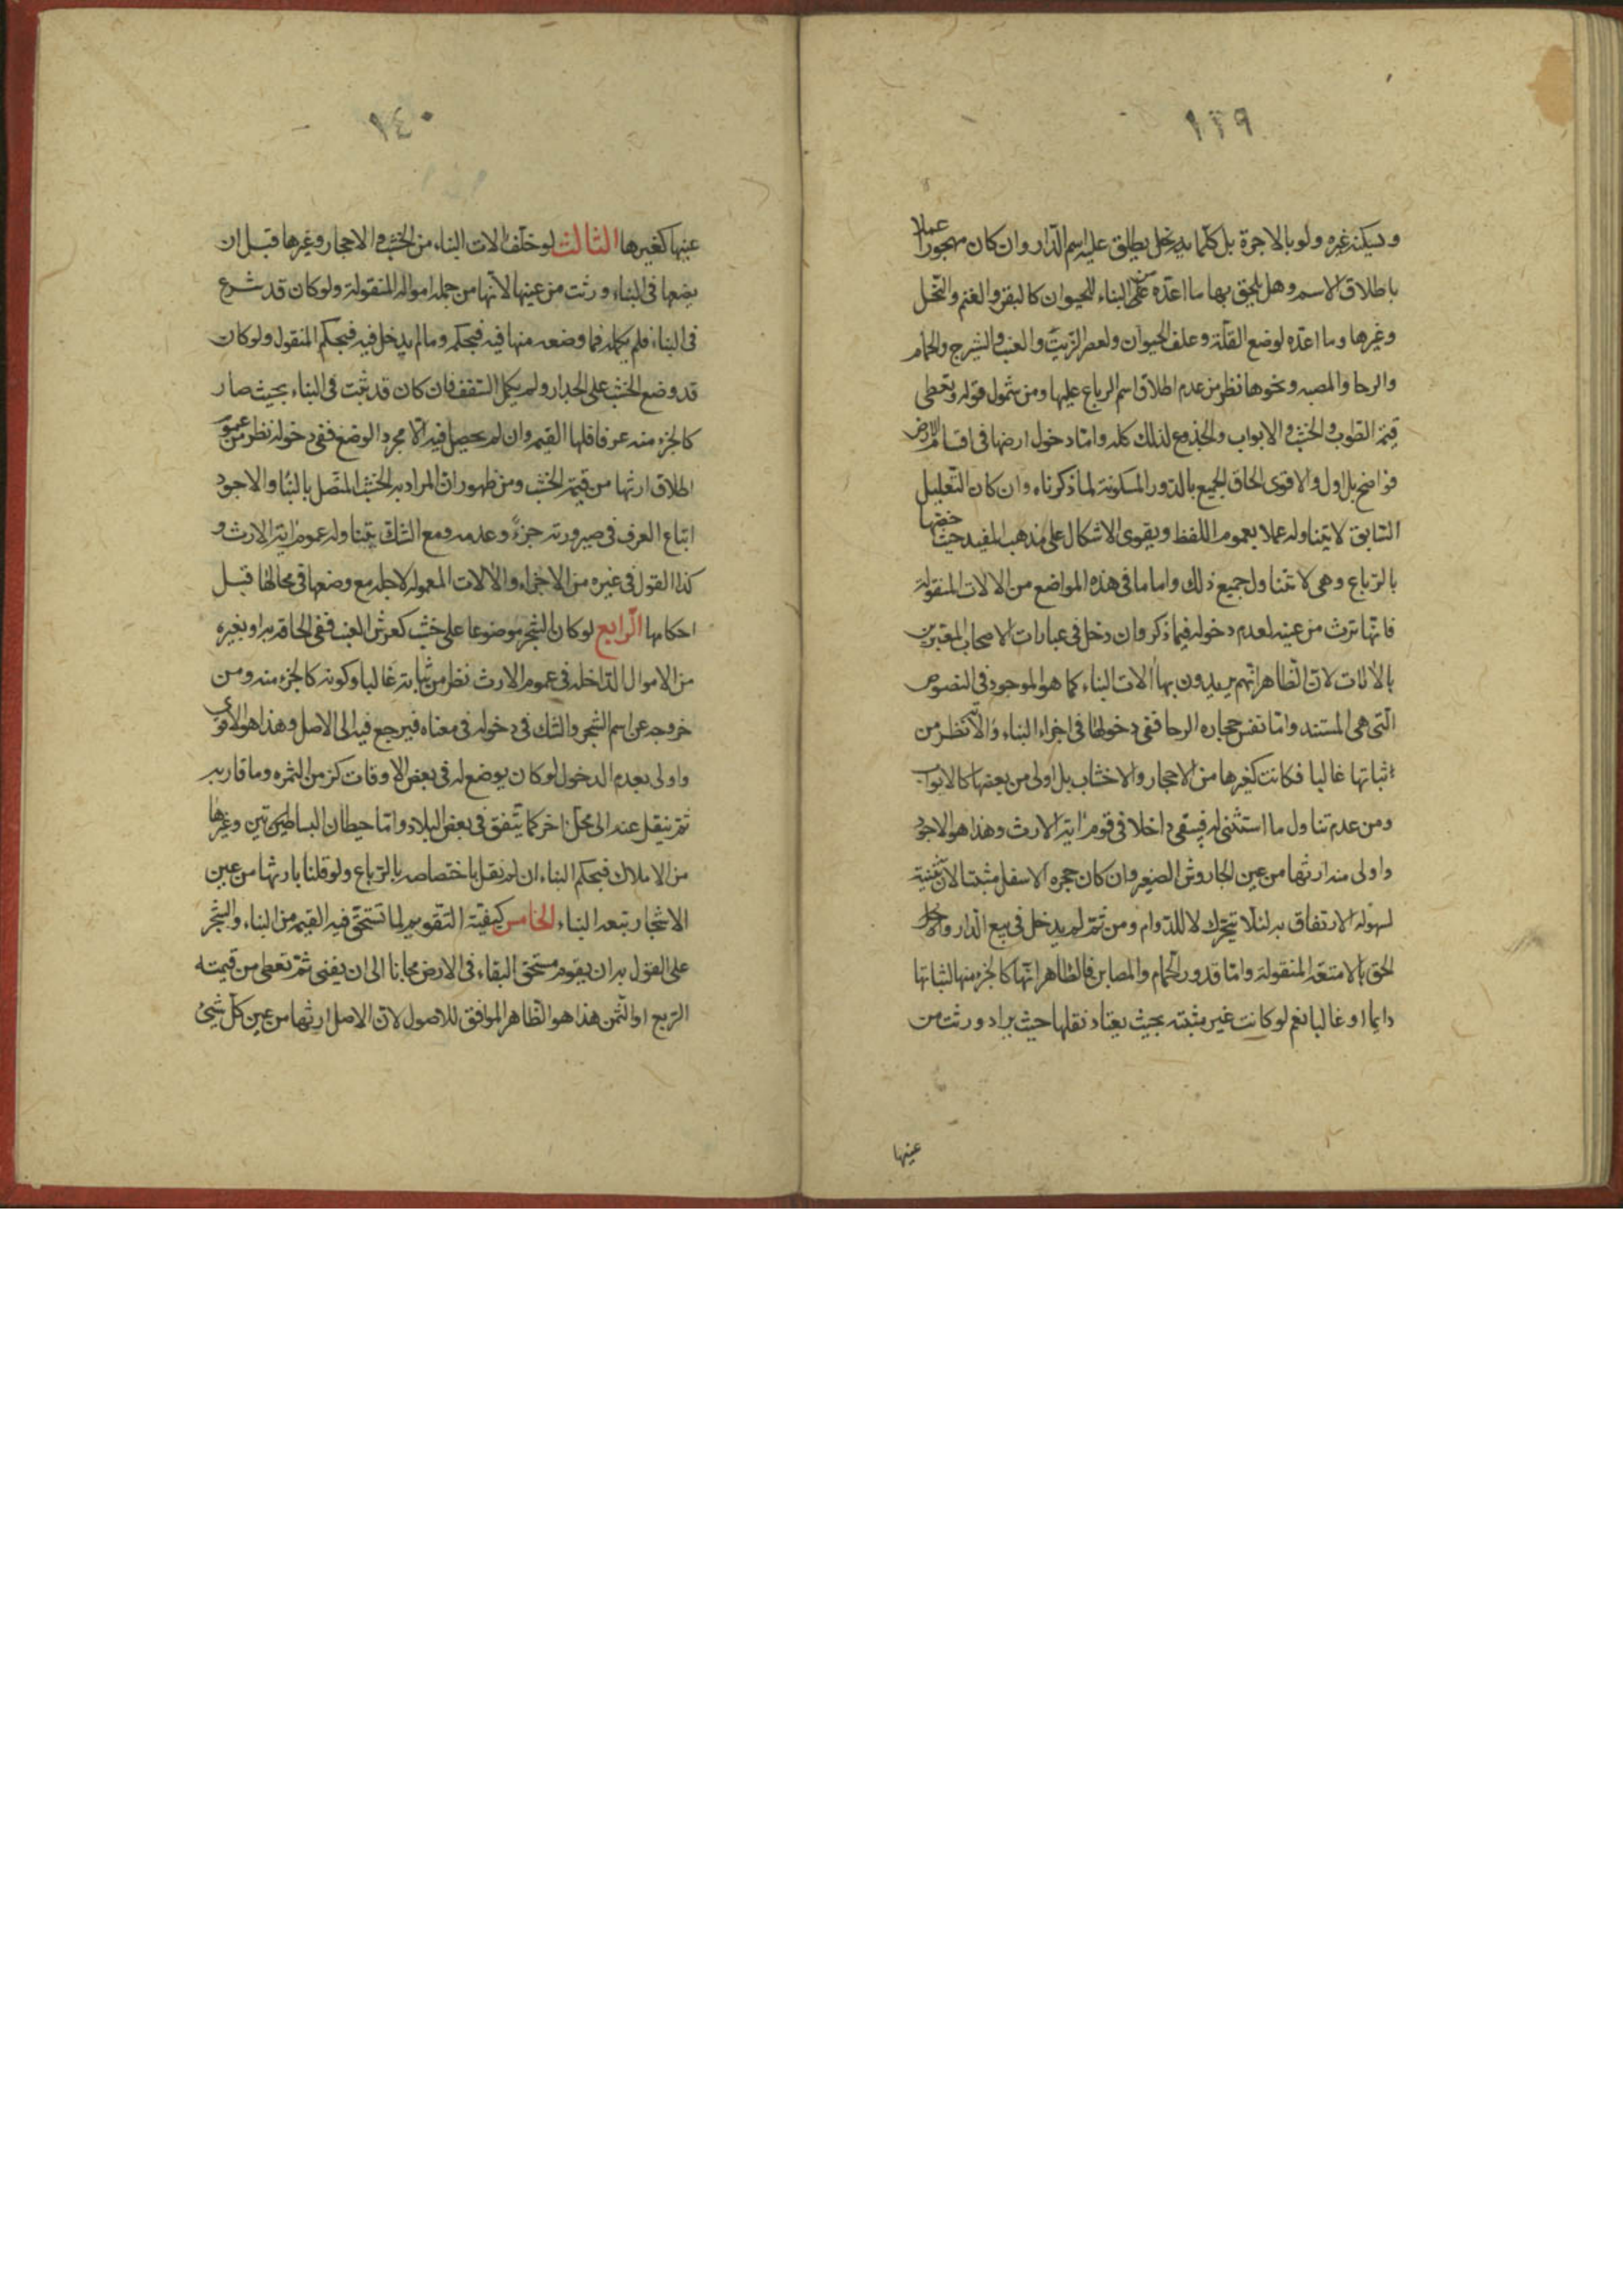 ١٣٩
ويسكنه غيره ولو بالاجرة بل كلما يدخل يطلق عليه اسم الدار وان كان مهجورا عملا
باطلاق الاسم وهل يلحق بها ما اعده من البناء للحيوان كالبقر والغنم والنحل
وغيرها وما اعده لوضع الغلة وعلف الحيوان ولعصر الزيت والعنب والشيرج والحمام
والرحا والمصبنه ونحوها نظر من عدم اطلاق اسم الرباع عليها ومن شمول قوله وتعطى
قيمة الطوب والخشب والابواب والجذوع لذلك كله واما دخول ارضها في اقسام الارض
فواضح بل اول والاقوى الحاق الجميع بالدور المسكونة لما ذكرناه وان كان التعليل
السابق لا يتناوله عملا بعموم اللفظ ويقوى الاشكال على مذهب المفيد حيث خصها
بالرباع وهي لا تتناول جميع ذلك واما ما في هذه المواضع من الالات المنقولة
فانها ترث من عينه لعدم دخوله فيما ذكر وان دخل في عبارات الاصحاب المعتبرين
بالالات لان الظاهر انهم يريدون بها الات البناء كما هو الموجود في النصوص
التي هي المستند واما نفس حجاره الرحا ففي دخولها في اجزاء البناء والا نظر من
اثباتها غالبا فكانت كغيرها من الاحجار والاخشاب بل اولى من بعضها كالابواب
ومن عدم تناول ما استثنى له فيبقى داخلا في عموم اية الارث وهذا هو الاجود
واولى منه ارثها من عين الجاروش الصغير وان كان حجره الاسفل مثبتا لان تثبيته
لسهوله الارتفاق به لئلا يتحرك لا للدوام ومن ثم لم يدخل في بيع الدار
الحق بالامتعه المنقولة واما قدور الحمام والمصابن فالظاهر انها كالجزء منها لثباتها
دايما او غالبا نعم لو كانت غير مثبته بحيث يعتاد نقلها حيث يراد ورثت من
عينها
١٤٠
عينها كغيرها الثالث لو خلف الات البناء من الخشب والاحجار وغيرها قبل ان
يضعها في البناء ورثت من عينها لانها من جمله امواله المنقولة ولو كان قد شرع
في البناء فلم يكمله فما وضعه منها فيه فبحكمه وما لم يدخل فيه فبحكم المنقول ولو كان
قد وضع الخشب على الجدار ولم يكمل السقف فان كان قد ثبت في البناء بحيث صار
كالجزء منه عرفا فلها القيمه وان لم يحصل فيه الا مجرد الوضع ففي دخوله نظر من عموم
اطلاق ارثها من قيمة الخشب ومن ظهور ان المراد به الخشب المتصل بالبناء والاجود
اتباع العرف في صيرورته جزءً وعدمه ومع الشك يتناوله عموم اية الارث و
كذا القول في غيره من الاجزاء والالات المعموله لاجله مع وضعها في محالها قبل
احكامها الرابع لو كان الشجر موضوعا على خشب كعرش العنب ففي الحاقه به او بغيره
من الاموال الداخله في عموم الارث نظر من ثباته غالبا وكونه كالجزء منه ومن
خروجه عن اسم الشجر والشك في دخوله في معناه فيرجع فيه الى الاصل وهذا هو الاقوى
واولى بعدم الدخول لو كان يوضع له في بعض الاوقات كزمن الثمره وما قاربه
ثم ينقل عنه الى محل اخر كما يتفق في بعض البلاد واما حيطان البساطين وغيرها
من الاملاك فبحكم البناء ان لم نقل باختصاصه بالرباع ولو قلنا بارثها من عين
الاشجار تبعه البناء الخامس كيفية التقويم لما تستحق فيه القيمه من البناء والشجر
على القول به ان يقوم مستحق البقاء في الارض مجانا الى ان يفنى ثم تعطى من قيمته
الربع او الثمن هذا هو الظاهر الموافق للاصول لان الاصل ارثها من عين كل شيئ